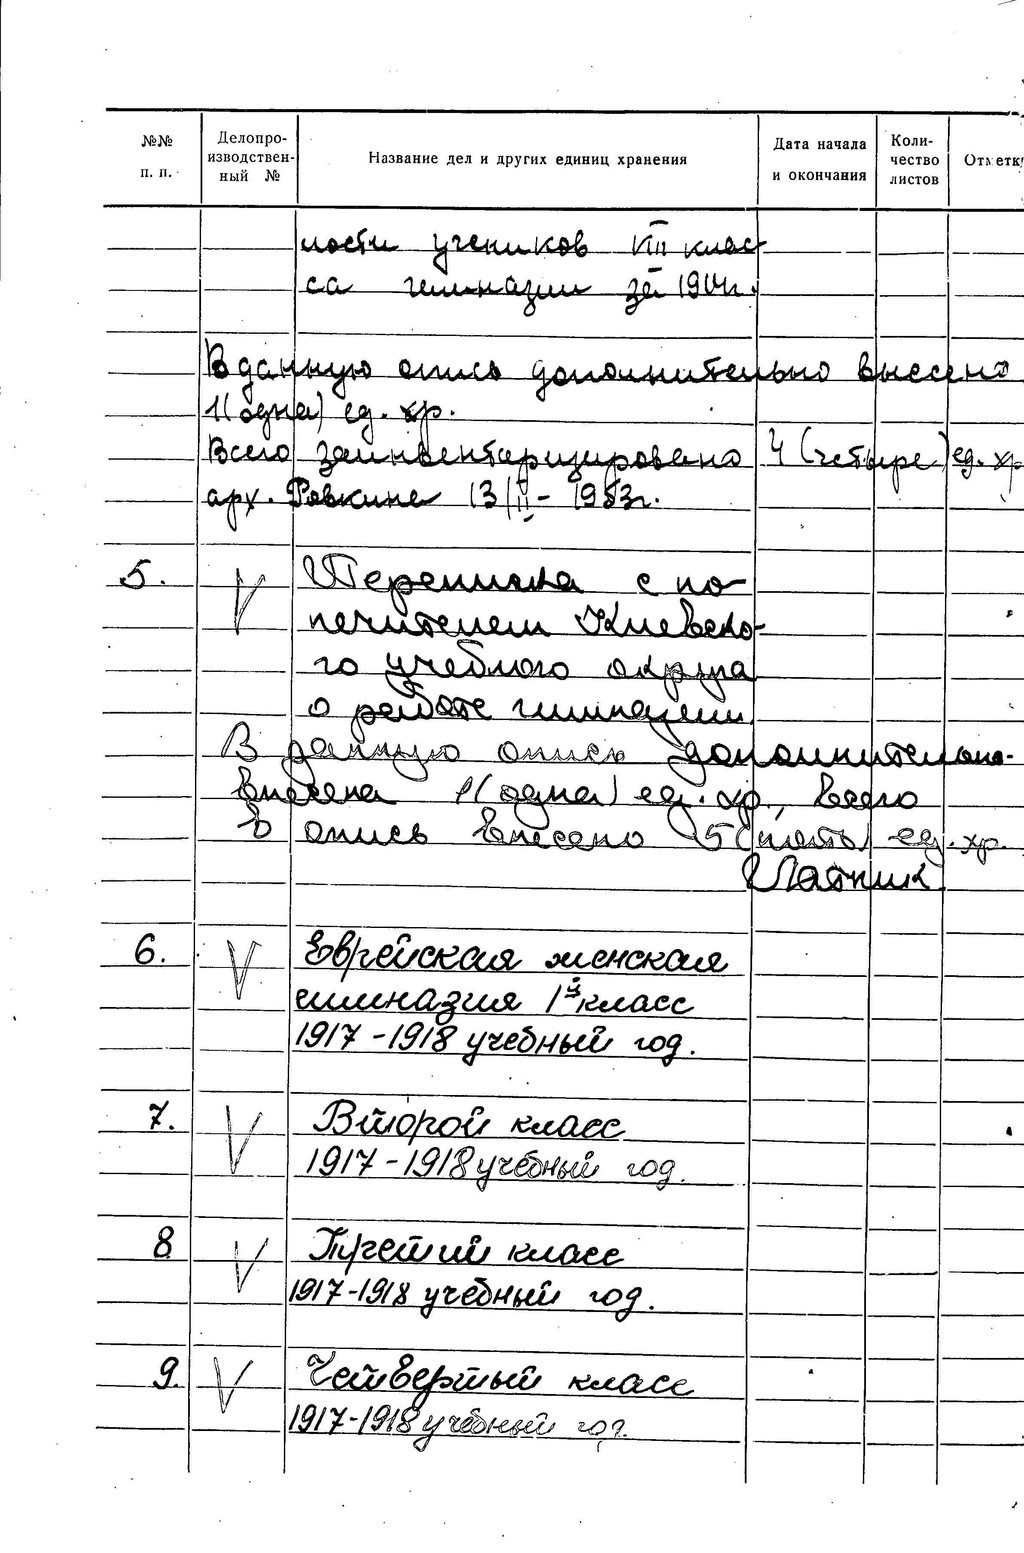 №№ п. п.
Делопро-
изводствен-
ный №
Название дел и других единиц хранения
Дата начала
и окончания
Коли-
чество
листов
Отметк
ности учеников VIII клас-
са гимназии за 1904г.
В данную опись дополнительно внесено
1 (одна) ед. хр.
Всего заинвентаризировано 4 (четыре) ед. хр
арх. 13/II - 1953г.
5. V Переписка с по-
печителем Киевско-
го учебного округа
о работе гимназии.
В данную опись дополнительно
внесена 1 (одна) ед. хр., всего
в опись внесено 5 (пять) ед. хр.
6. V Еврейская женская
гимназия 1й класс
1917-1918 учебный год.
7. V Второй класс
1917-1918 учебный год.
8 V Третий класс
1917-1918 учебный год.
9. V Четвертый класс
1917-1918 учебный год.